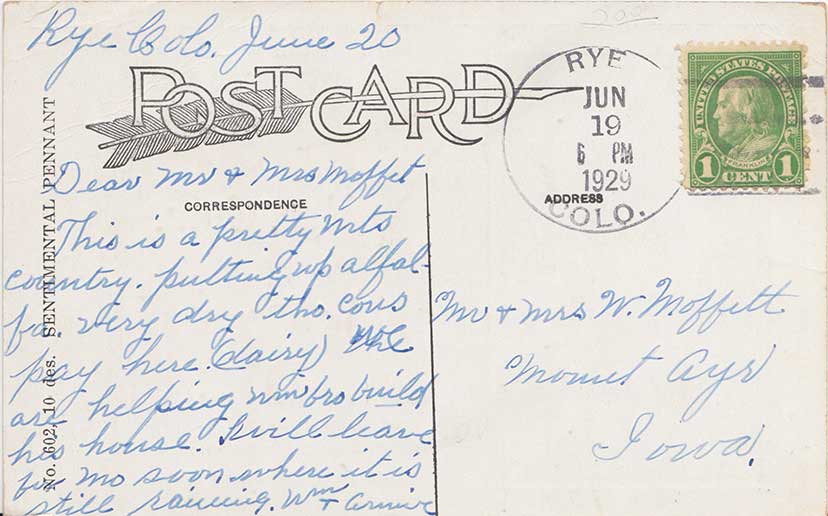 Rye Colo. June 20
POST CARD
Dear Mr & Mrs Moffet
CORRESPONDENCE
This is a pretty Mts
country. putting up alfal-
fa. very dry tho. cows
pay here. (dairy) We
are helping Wm bro build
his house. Will leave
for Mo soon where it is
still raining. Wm +
No. 602, 10 des. SENTIMENTAL PENNANT
RYE
JUN
19
6 PM
1929
COLO.
ADDRESS
UNITED STATES POSTAGE
FRANKLIN
1 CENT 1
Mr & Mrs W. Moffett
Mount Ayr
Iowa